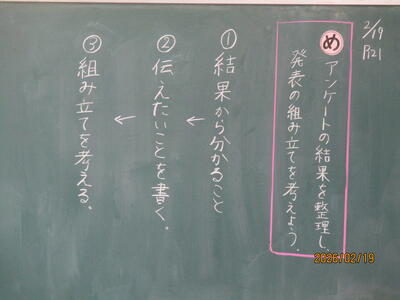 2/19
P.121
め アンケートの結果を整理し、
発表の組み立てを考えよう。
① 結果から分かること
↓
② 伝えたいことを書く。
↓
③ 組み立てを考える。
2025/02/19